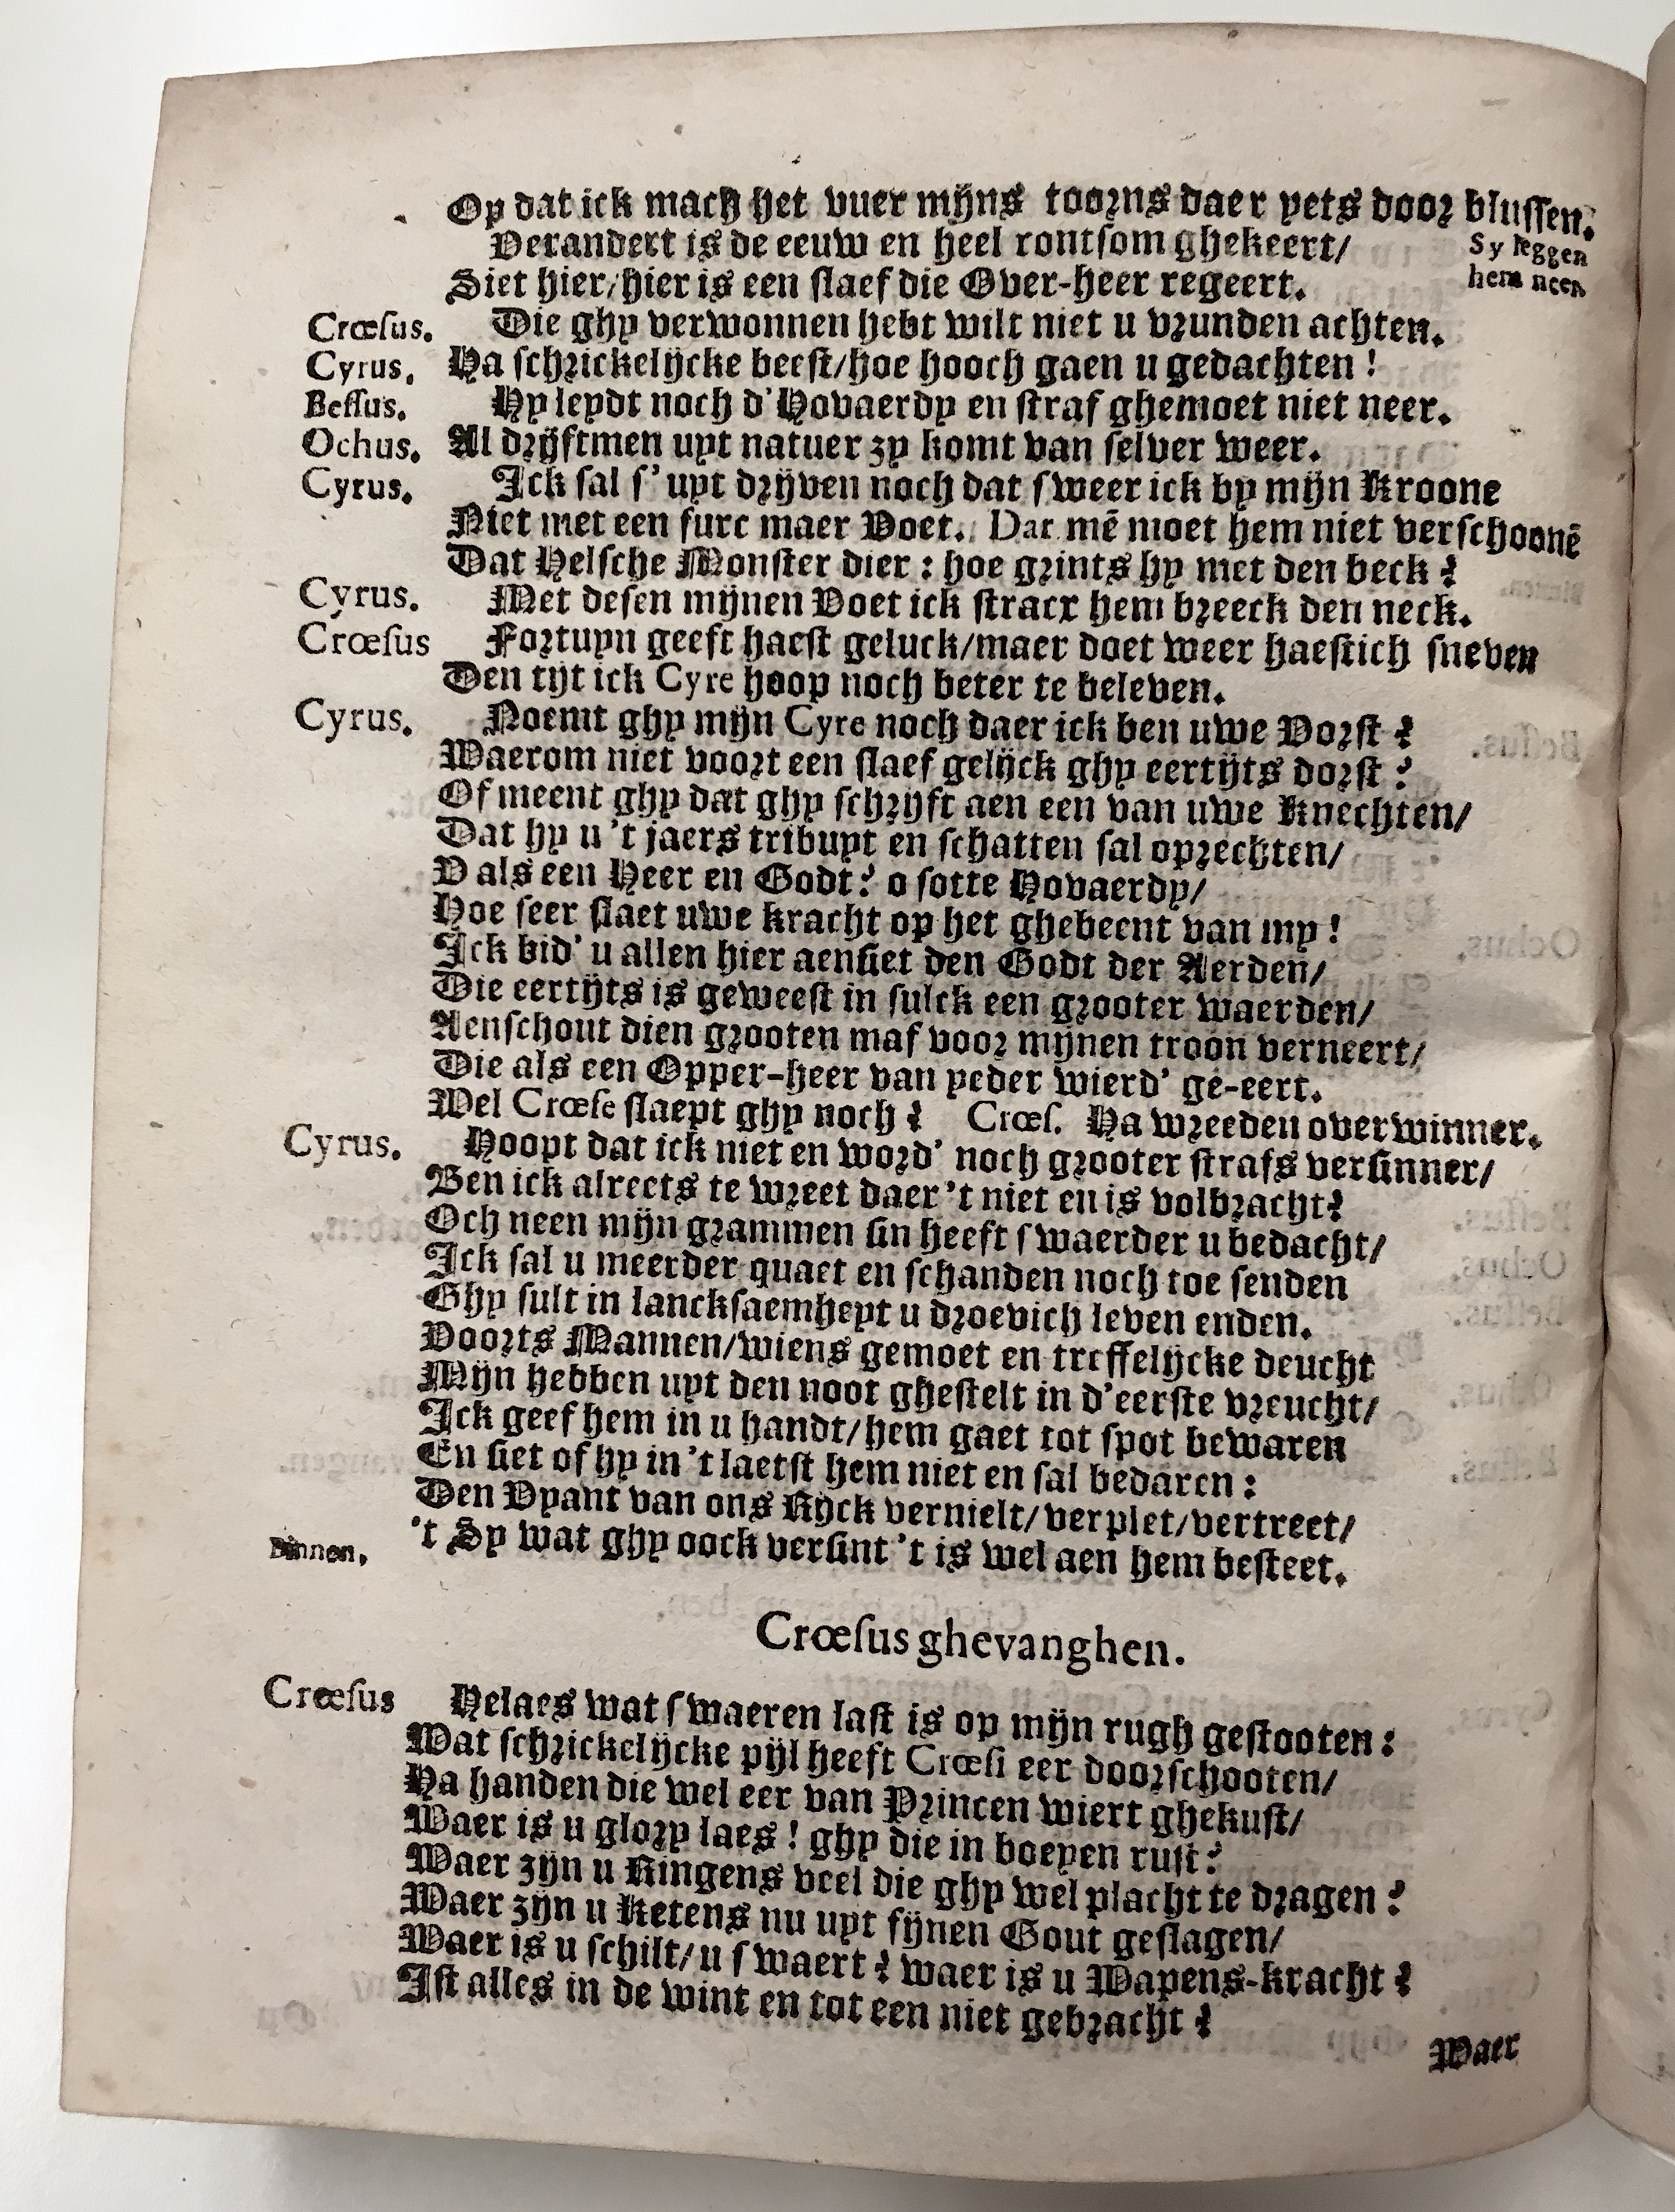 Op dat ick mach het vuer mijns toorns daer yets door blussen.
Verandert is de eeuw en heel rontsom ghekeert/ Sy leggen
Siet hier/hier is een slaef die Over-heer regeert. hem neer.
Crœsus. Die ghy verwonnen hebt wilt niet u vrunden achten.
Cyrus. Ha schrickelijcke beest/hoe hooch gaen u gedachten!
Bessus. Hy leydt noch d'Hovaerdy en straf ghemoet niet neer.
Ochus. Al drijftmen uyt natuer zy komt van selver weer.
Cyrus. Ick sal s'uyt drijven noch dat sweer ick by mijn Kroone
Niet met een furc maer Voet. Dar. mē moet hem niet verschoonē
Dat Helsche Monster dier: hoe grints hy met den beck?
Cyrus. Met desen mijnen Voet ick stracx hem breeck den neck.
Crœsus Fortuyn geeft haest geluck/maer doet weer haestich sneven
Den tijt ick Cyre hoop noch beter te beleven.
Cyrus. Noemt ghy mijn Cyre noch daer ick ben uwe Vorst?
Waerom niet voort een slaef gelijck ghy eertijts dorst?
Of meent ghy dat ghy schrijft aen een van uwe Knechten/
Dat hy u 't jaers tribuyt en schatten sal oprechten/
V als een Heer en Godt? o sotte Hovaerdy/
Hoe seer slaet uwe kracht op het ghebeent van my!
Ick bid' u allen hier aensiet den Godt der Aerden/
Die eertijts is geweest in sulck een grooter waerden/
Aenschout dien grooten maf voor mijnen troon verneert/
Die als een Opper-heer van yeder wierd' ge-eert.
Wel Crœse slaept ghy noch? Crœs. Ha wreeden overwinner.
Cyrus. Hoopt dat ick niet en word' noch grooter strafs versinner/
Ben ick alreets te wreet daer 't niet en is volbracht?
Och neen mijn grammen sin heeft swaerder u bedacht/
Ick sal u meerder quaet en schanden noch toe senden
Ghy sult in lancksaemheyt u droevich leven enden.
Voorts Mannen/wiens gemoet en treffelijcke deucht
Mijn hebben uyt den noot ghestelt in d'eerste vreucht/
Ick geef hem in u handt/hem gaet tot spot bewaren
En siet of hy in 't laetst hem niet en sal bedaren:
Den Vyant van ons Rijck vernielt/verplet/vertreet/
Binnen. 't Sy wat ghy oock versint 't is wel aen hem besteet.
Crœsus ghevanghen.
Crœsus Helaes wat swaeren last is op mijn rugh gestooten:
Wat schrickelijcke pijl heeft Crœsi eer doorschooten/
Ha handen die wel eer van Princen wiert ghekust/
Waer is u glory laes! ghy die in boeyen rust?
Waer zijn u Ringens veel die ghy wel placht te dragen?
Waer zijn u Ketens nu uyt fijnen Gout geslagen/
Waer is u schilt/u swaert? waer is u Wapens-kracht?
Ist alles in de wint en tot een niet gebracht?
Waer